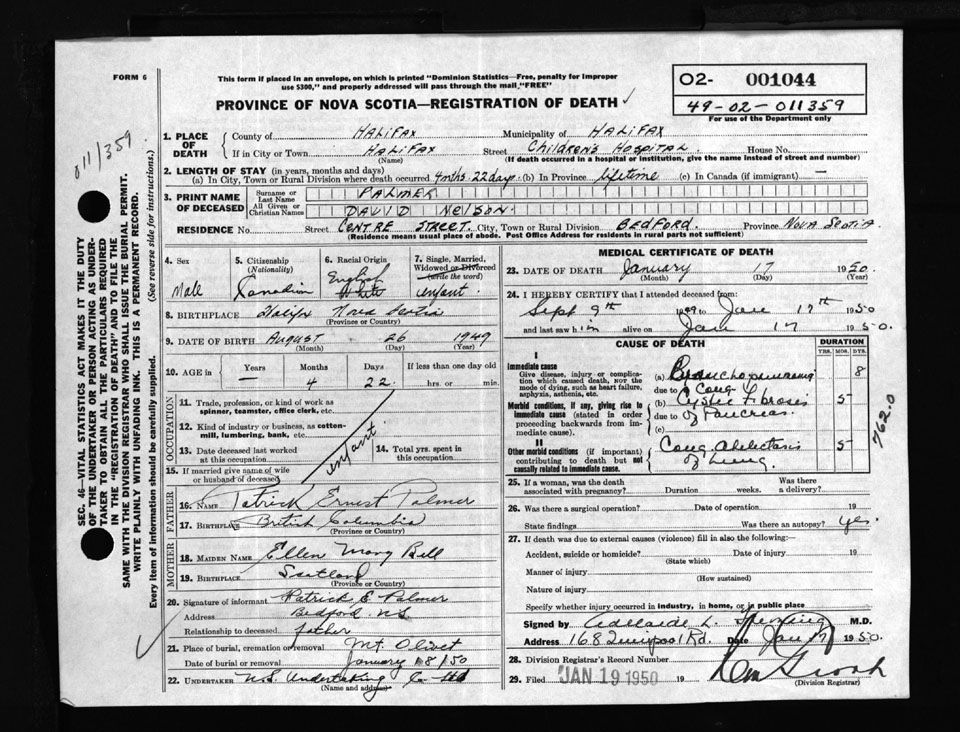 FORM 6
This form if placed in an envelope, on which is printed "Dominion Statistics—Free, penalty for improper
use $300," and properly addressed will pass through the mail "FREE"
O2- 001044
49-02-011359
For use of the Department only
PROVINCE OF NOVA SCOTIA—REGISTRATION OF DEATH ✓
011/359
SEC. 46—VITAL STATISTICS ACT MAKES IT THE DUTY
OF THE UNDERTAKER OR PERSON ACTING AS UNDER-
TAKER TO OBTAIN ALL THE PARTICULARS REQUIRED
IN THE "REGISTRATION OF DEATH" AND TO FILE THE
SAME WITH THE DIVISION REGISTRAR WHO SHALL ISSUE THE BURIAL PERMIT.
WRITE PLAINLY WITH UNFADING INK. THIS IS A PERMANENT RECORD.
Every item of information should be carefully supplied. (See reverse side for instructions.)
1. PLACE OF DEATH
County of HALIFAX Municipality of HALIFAX
If in City or Town HALIFAX Street Children's Hospital House No.
(Name) (If death occurred in a hospital or institution, give the name instead of street and number)
2. LENGTH OF STAY (in years, months and days)
(a) In City, Town or Rural Division where death occurred 4mths. 22days. (b) In Province lifetime (c) In Canada (if immigrant) —
3. PRINT NAME OF DECEASED
Surname or Last Name PALMER
All Given or Christian Names DAVID NELSON.
RESIDENCE No. Street CENTRE STREET. City, Town or Rural Division BEDFORD. Province NOVA SCOTIA
(Residence means usual place of abode. Post Office Address for residents in rural parts not sufficient)
4. Sex
Male
5. Citizenship (Nationality)
Canadian
6. Racial Origin
English
White
7. Single, Married, Widowed or Divorced (write the word)
infant
8. BIRTHPLACE Halifax Nova Scotia
(Province or Country)
9. DATE OF BIRTH August 26 1949
(Month) (Day) (Year)
10. AGE in Years Months Days If less than one day old
— 4 22. hrs. or min.
OCCUPATION
11. Trade, profession, or kind of work as spinner, teamster, office clerk, etc.
12. Kind of industry or business, as cotton-mill, lumbering, bank, etc.
13. Date deceased last worked at this occupation
14. Total yrs. spent in this occupation
infant
15. If married give name of wife or husband of deceased
FATHER
16. NAME Patrick Ernest Palmer
17. BIRTHPLACE British Columbia
(Province or Country)
MOTHER
18. MAIDEN NAME Ellen Mary Bell
19. BIRTHPLACE Scotland
(Province or Country)
20. Signature of informant Patrick E. Palmer
Address Bedford N.S.
Relationship to deceased father
21. Place of burial, cremation or removal Mt. Olivet
Date of burial or removal January 18/50
22. UNDERTAKER N.S. Undertaking Co Ltd
(Name and address)
MEDICAL CERTIFICATE OF DEATH
23. DATE OF DEATH January 17 1950.
(Month) (Day)
24. I HEREBY CERTIFY that I attended deceased from
Sept 9th 1949 to Jan 17th 1950
and last saw him alive on Jan 17 1950.
CAUSE OF DEATH DURATION
YRS. MOS. DYS.
I
Immediate cause
Give disease, injury or complication which caused death, nor the mode of dying, such as heart failure, asphyxia, asthenia, etc.
(a) Bronchopneumonia 8
due to Cong
Morbid conditions, if any, giving rise to immediate cause (stated in order proceeding backwards from immediate cause).
(b) Cystic Fibrosis 5
due to of Pancreas.
(c)
II
Other morbid conditions (if important) contributing to death but not causally related to immediate cause.
Cong Atelectasis 5
of Lung.
762.0
25. If a woman, was the death associated with pregnancy? Duration weeks. Was there a delivery?
26. Was there a surgical operation? Date of operation. 19
State findings Was there an autopsy? Yes.
27. If death was due to external causes (violence) fill in also the following:
Accident, suicide or homicide? Date of injury 19
(State which)
Manner of injury
(How sustained)
Nature of injury
Specify whether injury occurred in industry, in home, or in public place
Signed by Adelaide L. M.D.
Address 168 Quinpool Rd. Date Jan 17 1950.
28. Division Registrar's Record Number
29. Filed JAN 19 1950 19
(Division Registrar)